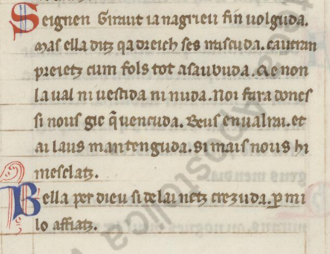 Seignen Giraut ia nagrieu fin uolguda.
mas ella ditz qa dreich ses miscuda. caueran
preietz cum fols tot asaubuda. Ae non
laual ni uestida ni nuda. Noi fara doncs
si nous gic q̃ uencuda. Beus enualrai. et
ai laus mantenguda. si mais nous hi
mesclatz.
Bella per dieu si delai netz crezuda. ꝑ mi
lo affiatz.
Apostolica